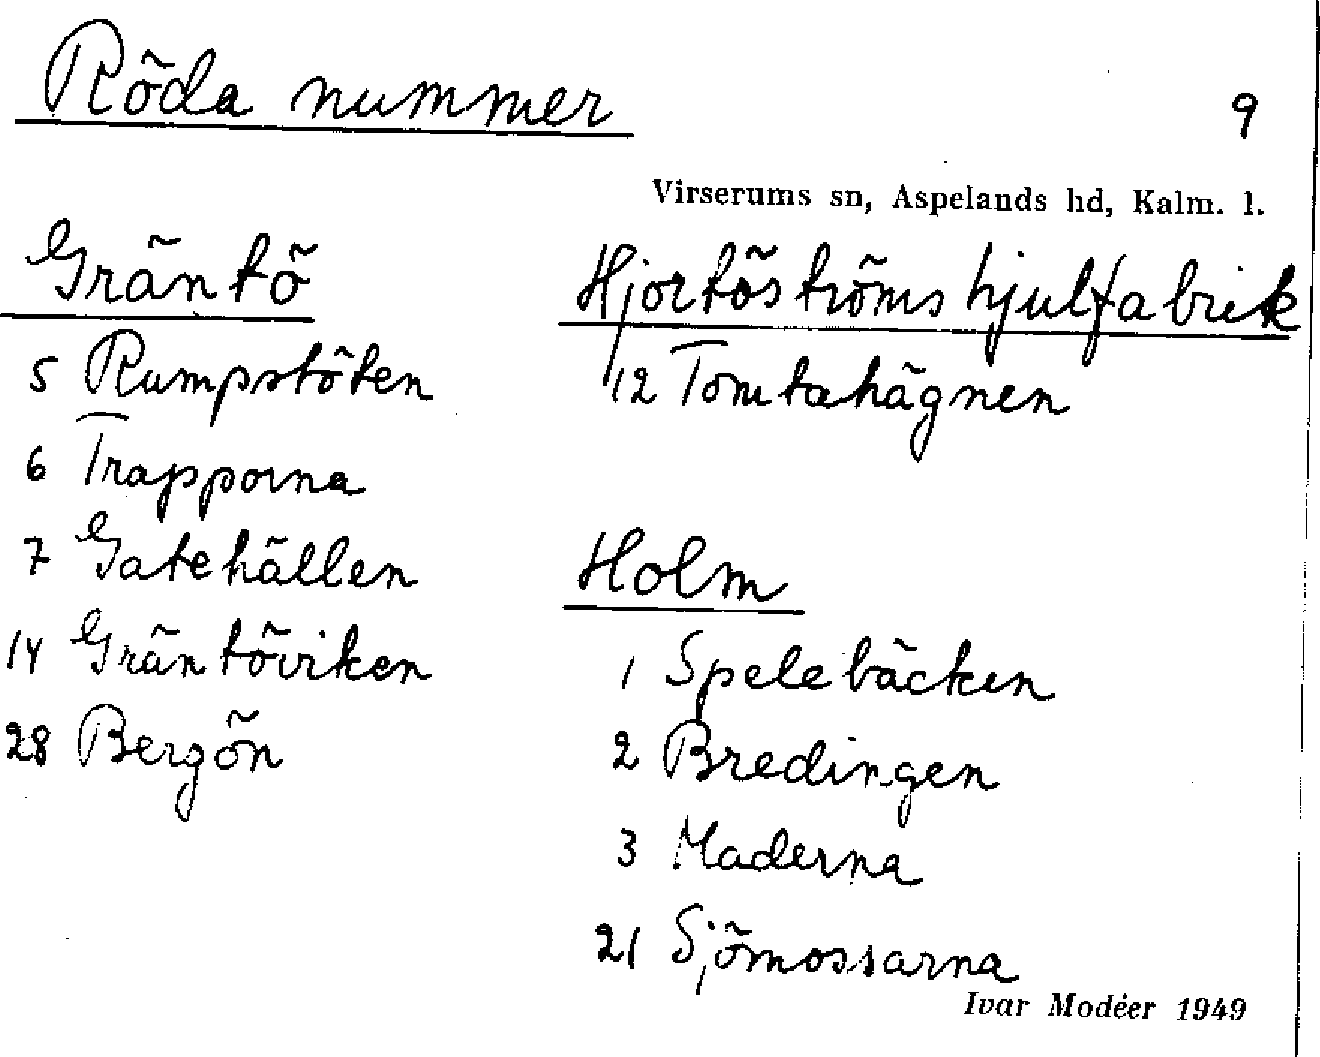 Röda nummer
9
Virserums sn, Aspelands hd, Kalm. l.
Gräntö
5 Rumpstöten
6 Trapporna
7 Gatehällen
14 Gräntöviken
28 Bergön
Hjortöströms hjulfabrik
12 Tomtahägnen
Holm
1 Spelebäcken
2 Bredingen
3 Maderna
21 Sjömossarna
Ivar Modéer 1949